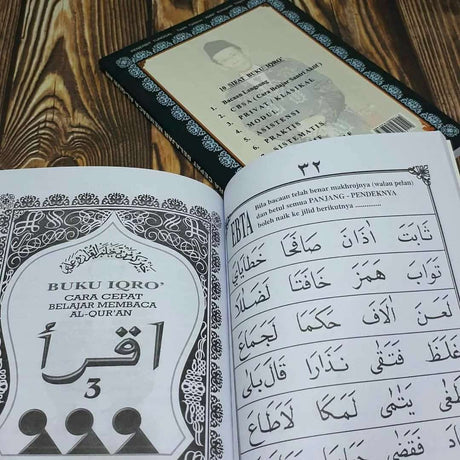 10 SIFAT BUKU IQRO'
1. Bacaan Langsung
2. CBSA (Cara Belajar Santri Aktif)
3. PRIVAT / KLASIKAL
4. MODUL
5. ASISTENSI
6. PRAKTIS
SISTEMATIS
خيركم من تعلم القرآن وعلمه
BUKU IQRO'
CARA CEPAT
BELAJAR MEMBACA
AL-QUR'AN
اقرأ
3
٣٢
EBTA
Bila bacaan telah benar makhrojnya (walau pelan)
dan betul semua PANJANG - PENDEKNYA
boleh naik ke jilid berikutnya ............
ثَابَتَ اٰذَانَ صَافَحَا خَطَايَايَ
تَوَابَ هَمَزَ خَافَتَا
لَعَنَ اٰلَافَ حَكَمَا لَجَمَاعَ
غَلَظَ فَتَقٰى نَذَارَا قَالَ بَلٰى
يَتٰمٰى لَمَكَا لَاطَاعَ
فَقَضٰى